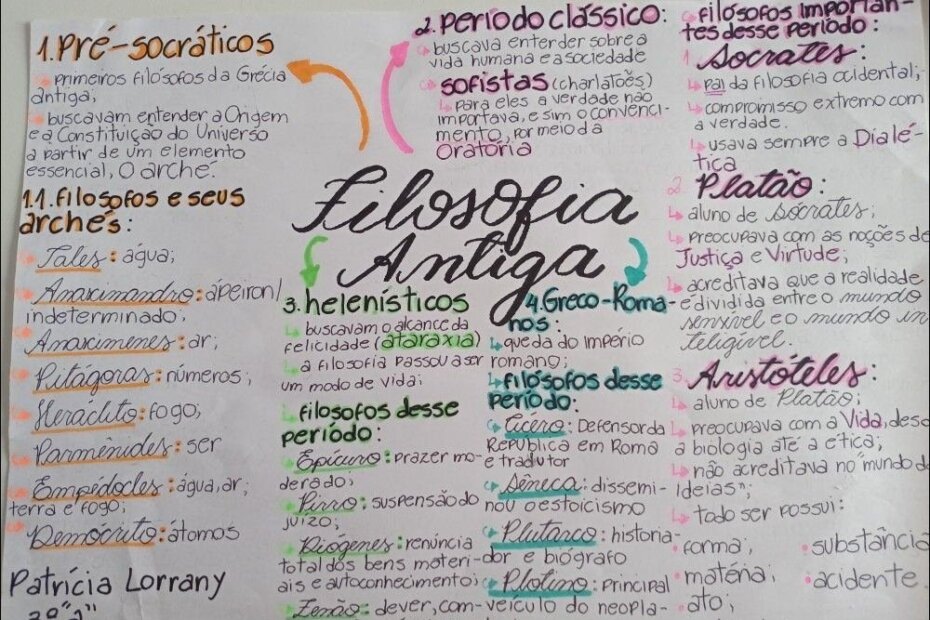 Filosofia
Antiga
1. Pré-socráticos
primeiros filósofos da Grécia
antiga;
buscavam entender a Origem
e a Constituição do Universo
a partir de um elemento
essencial, O arché.
1.1. filosofos e seus
archés:
Tales: água;
Anaximandro: ápeiron/
indeterminado;
Anaxímenes: ar;
Pitágoras: números;
Heraclito: fogo;
Parmênides: ser
Empédocles: água, ar,
terra e fogo;
Demócrito: átomos
Patrícia Lorrany
2. Período clássico:
buscava entender sobre a
vida humana e a sociedade
sofistas (charlatões)
para eles a verdade não
importava, e sim o convenci-
mento, por meio da
Oratória
filósofos importan-
tes desse período:
1. Sócrates:
pai da filosofia ocidental;
compromisso extremo com
a verdade.
usava sempre a Dialé-
tica
2. Platão:
aluno de Sócrates;
preocupava com as noções de
Justiça e Virtude;
acreditava que a realidade
é dividida entre o mundo
sensível e o mundo in
teligível.
3. Aristóteles:
aluno de Platão;
preocupava com a Vida, desd
a biologia até a ética;
não acreditava no "mundo d
Ideias";
todo ser possui:
forma;
matéria;
ato;
substância
acidente.
3. helenísticos
buscavam o alcance da
felicidade (ataraxia)
a filosofia passou a ser
um modo de vida;
filosofos desse
período:
Epicuro: prazer mo-
derado;
Pirro: suspensão do
juízo;
Diógenes: renúncia
total dos bens materi-
ais e autoconhecimento;
Zenão: dever, com-
4. Greco-Roma-
nos:
queda do império
romano;
filósofos desse
período:
Cícero: Defensor da
República em Roma
e tradutor
Sêneca: dissemi-
nou o estoicismo
Plutarco: historia-
dor e biógrafo
Plotino: principal
veículo do neopla-